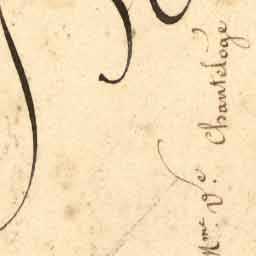 Mme Ve. Chanteloge